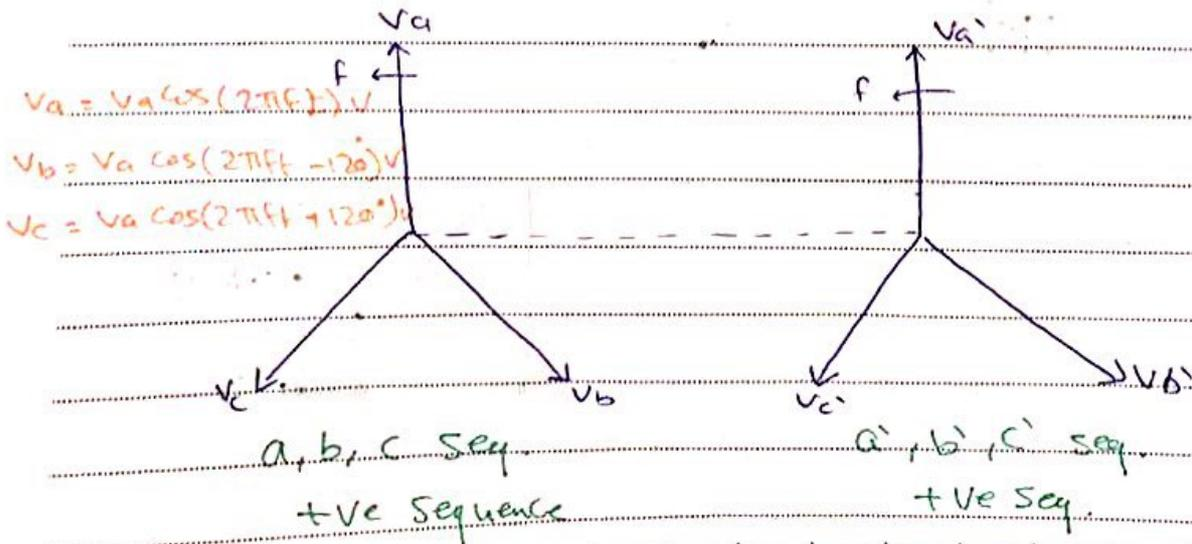 Va
Va`
f
f
Va = Va cos(2πft) V
Vb = Va cos(2πft - 120°) V
Vc = Va cos(2πft + 120°) V
Vc
Vb
Vc`
Vb`
a, b, c seq.
a`, b`, c` seq.
+ve sequence
+ve seq.